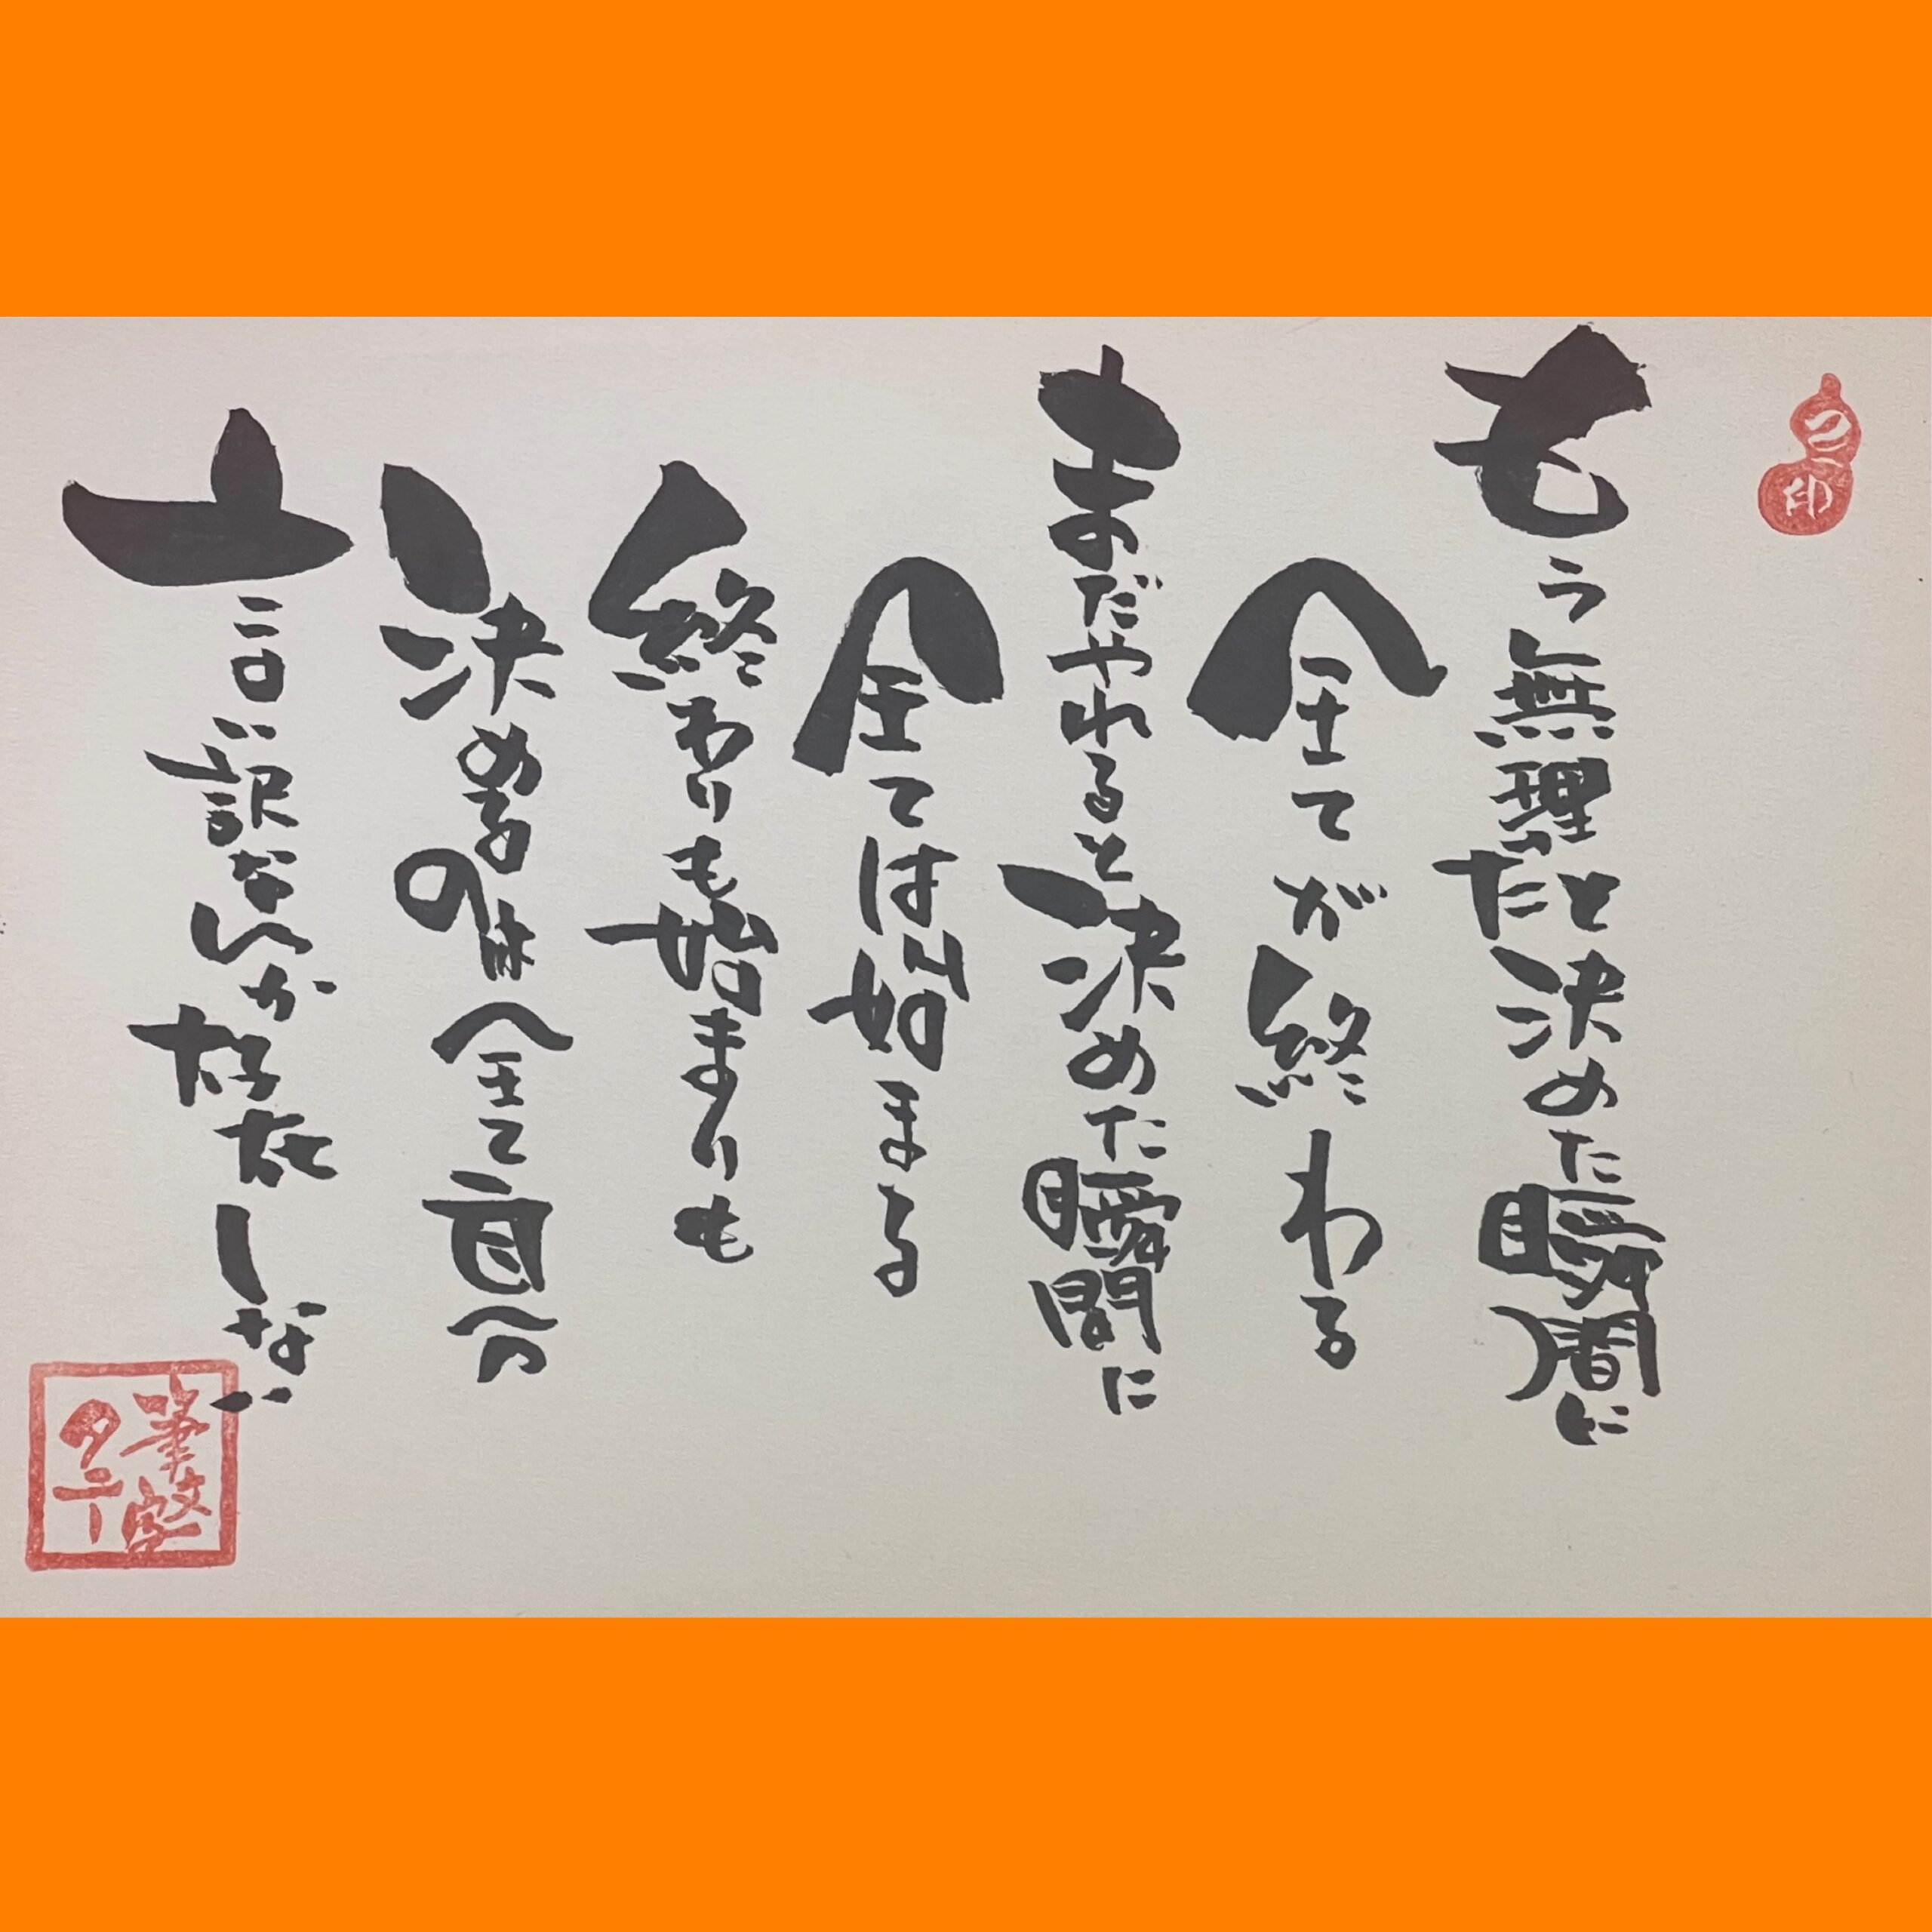 もう無理だと決めた瞬間に
全てが終わる
まだやれると決めた瞬間に
全ては始まる
終わりも始まりも
決めるのは全て自分
言い訳なんか存在しない
筆文字
タニー